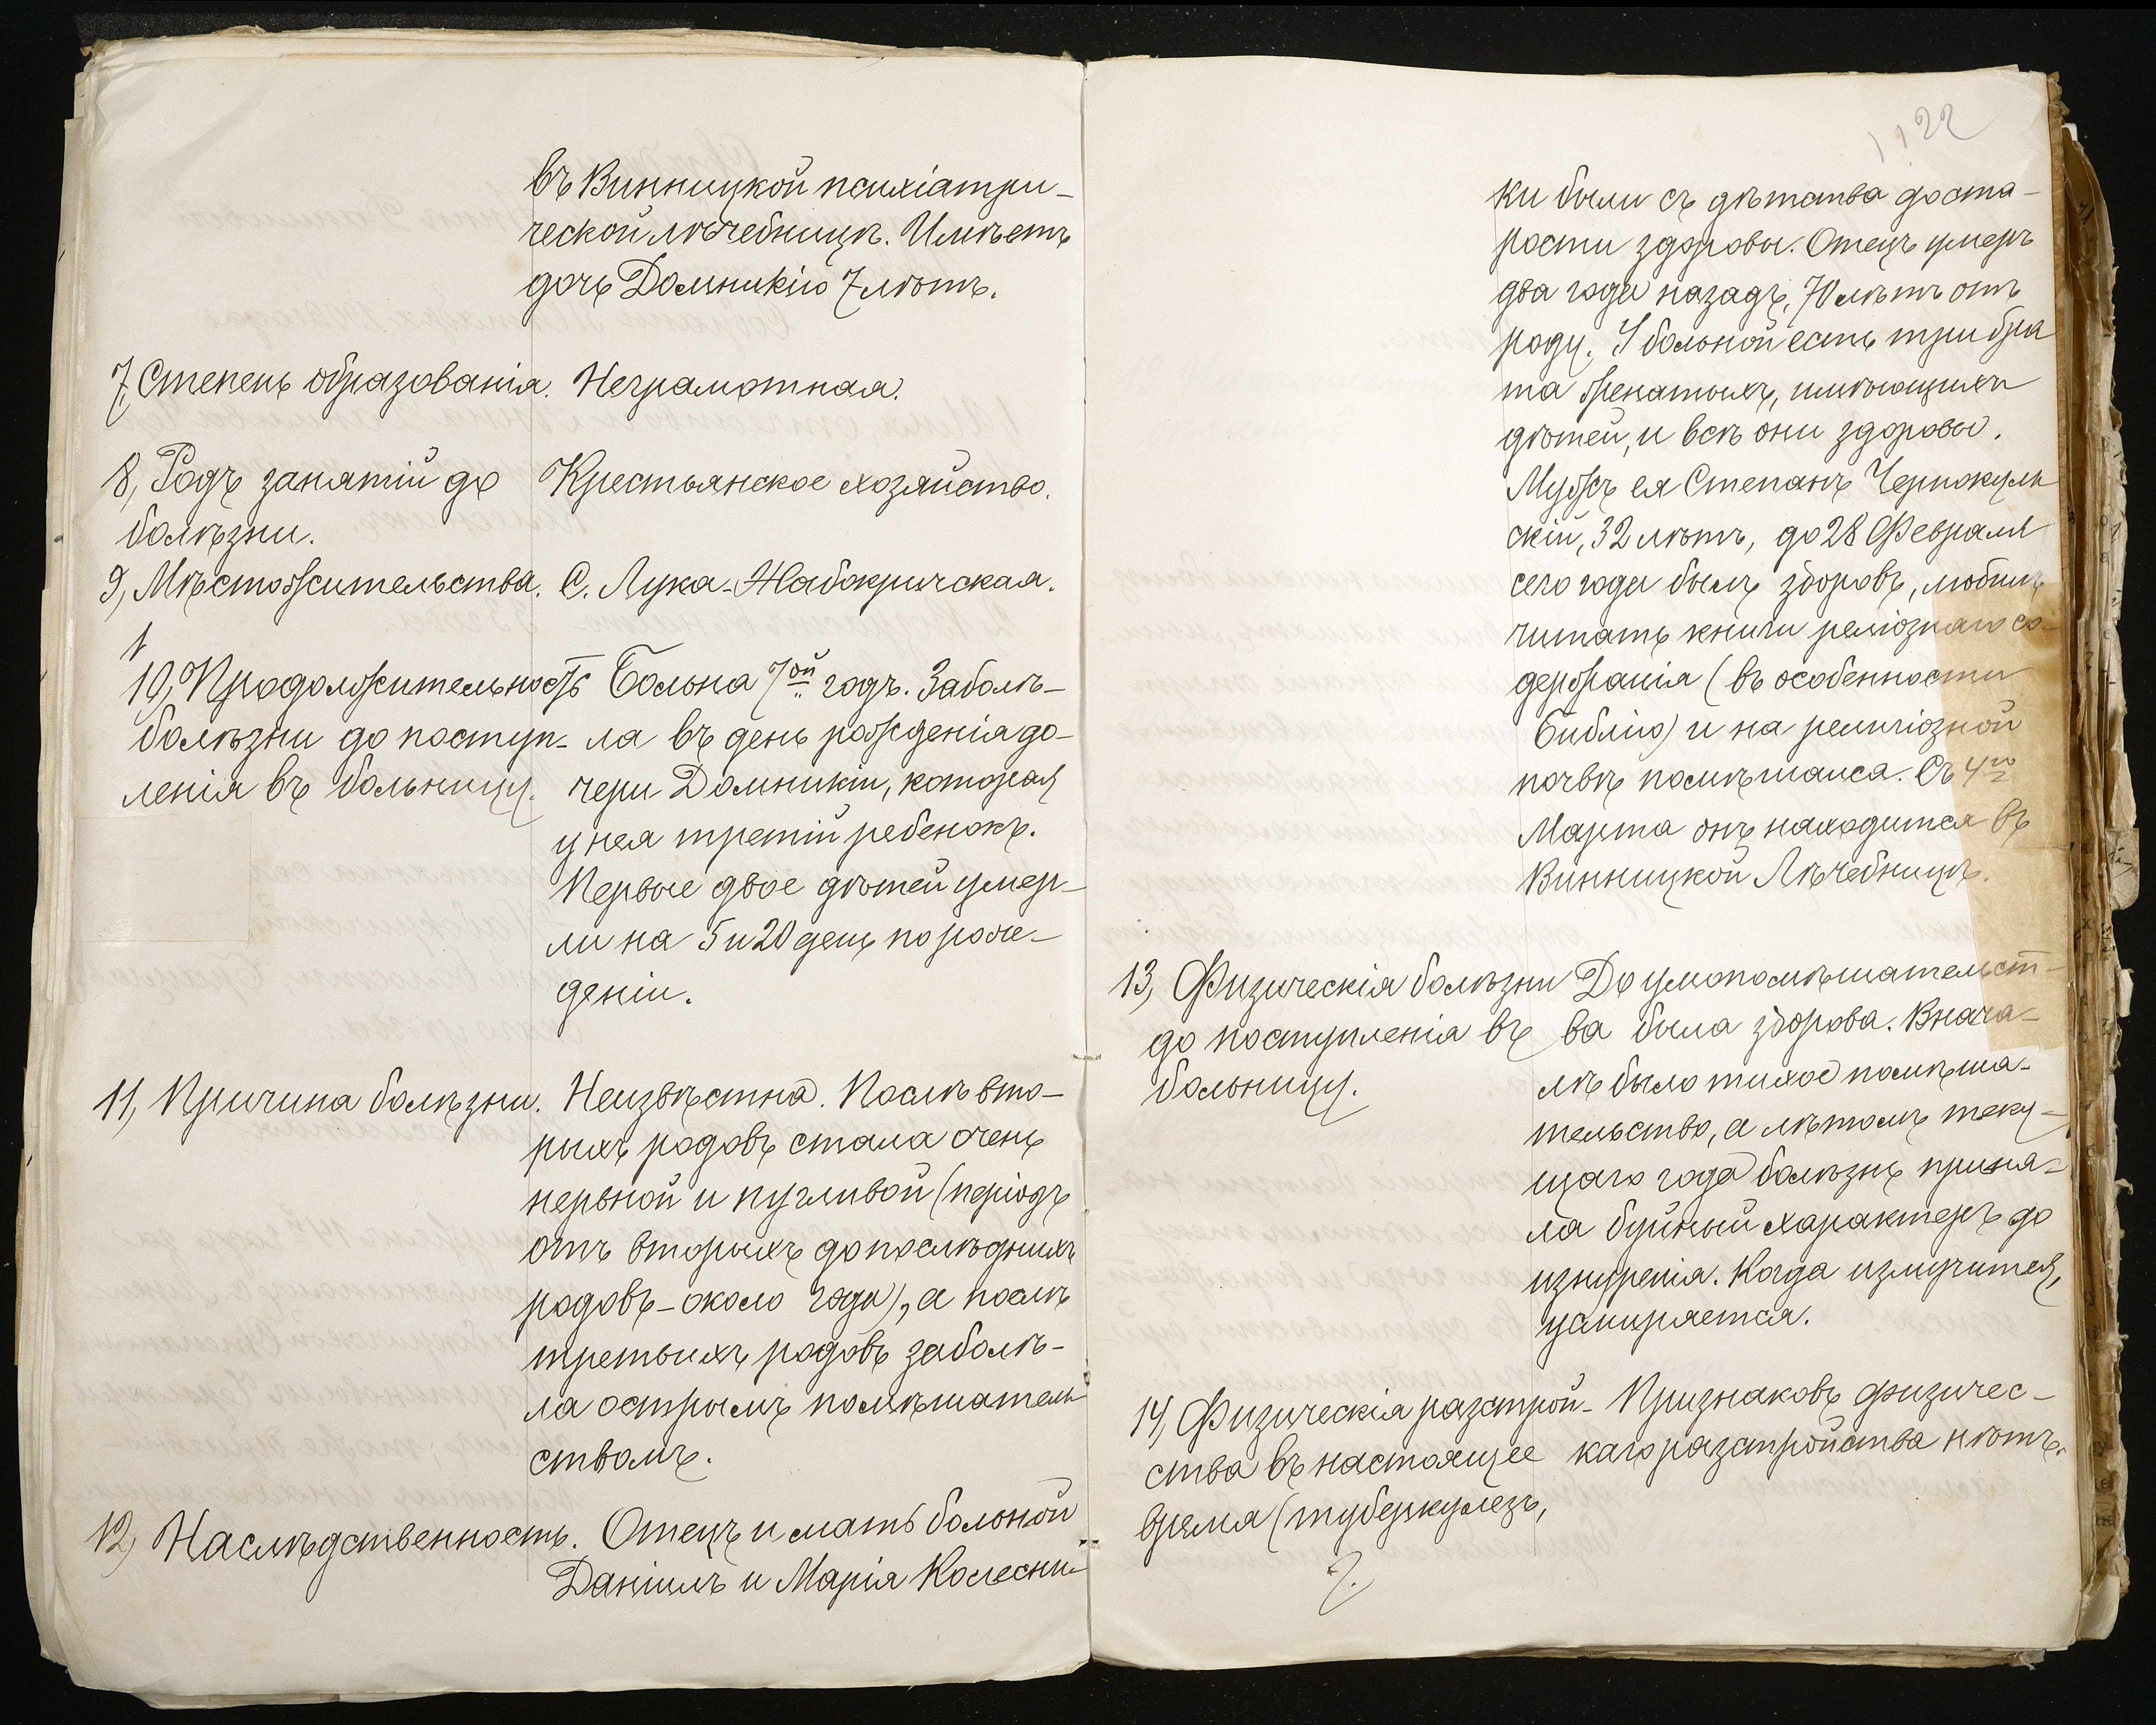 въ Винницкой психіатри-
ческой лѣчебницѣ. Имѣетъ
дочь Домникію 7 лѣтъ.
7, Степень образованія. Неграмотная.
8, Родъ занятій до Крестьянское хозяйство.
болѣзни.
9, Мѣстожительства. С. Лука-Жабокричская.
10, Продолжительность Больна 7ой годъ. Заболѣ-
болѣзни до поступ- ла въ день рожденія до-
ленія въ больницу. чери Домникіи, которая
у нея третій ребенокъ.
Первые двое дѣтей умер-
ли на 5 и 20 день по рож-
деніи.
11, Причина болѣзни. Неизвѣстна. Послѣ вто-
рыхъ родовъ стала очень
нервной и пугливой (періодъ
отъ вторыхъ до послѣднихъ
родовъ - около года), а послѣ
третьихъ родовъ заболѣ-
ла острымъ помѣшатель
ствомъ.
12, Наслѣдственность. Отецъ и мать больной
Даніилъ и Марія Колесни-
1122
ки были съ дѣтства до ста-
рости здоровы. Отецъ умеръ
два года назадъ, 70 лѣтъ отъ
роду. У больной есть три бра
та женатыхъ, имѣющихъ
дѣтей, и всѣ они здоровы.
Мужъ ея Степанъ Чернокуль
скій, 32 лѣтъ, до 28 Февраля
сего года былъ здоровъ, любилъ
читать книги релюзнаго со-
держанія (въ особенности
Библію) и на религіозной
почвѣ помѣшался. Съ 4го
Марта онъ находится въ
Винницкой Лѣчебницѣ.
13, Физическія болѣзни До умопомѣшательст-
до поступленія въ ва была здорова. Внача-
больницу. лѣ было тихое помѣша-
тельство, а лѣтомъ теку-
щаго года болѣзнь приня-
ла буйный характеръ до
изнуренія. Когда измучится,
усмиряется.
14, Физическія разстрой- Признаковъ физичес-
ства въ настоящее каго разстройства нѣтъ.
время (туберкулезъ,